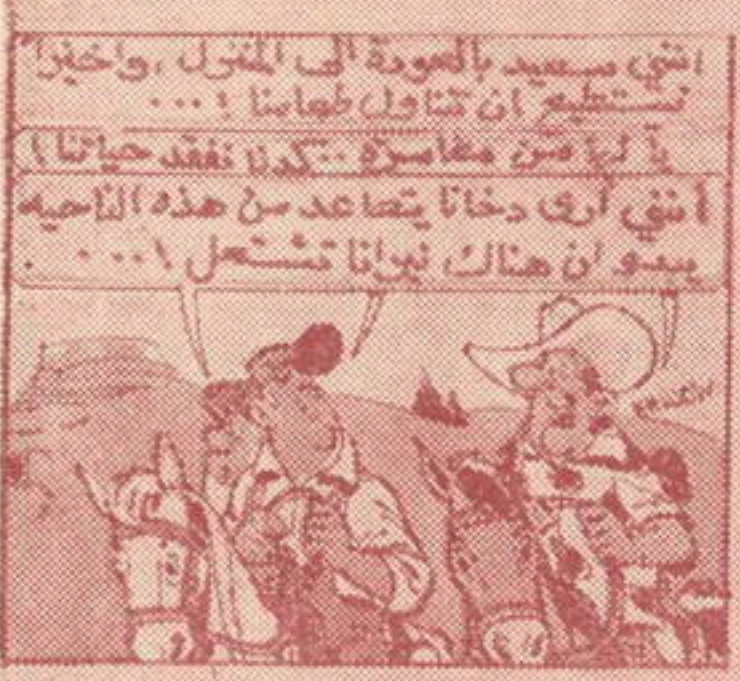 انني سعيد بالعودة الى المنزل ، واخيرا
نستطيع ان نتناول طعامنا ! ...
يا لها من مغامرة .. كدنا نفقد حياتنا !
انني أرى دخانا يتصاعد من هذه الناحيه
يبدو ان هناك نيرانا تشتعل ! ...